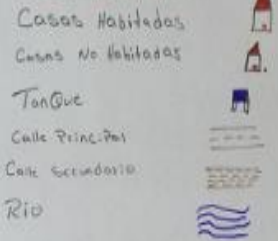 Casas Habitadas
Casas No Habitadas
TanQue
Calle Principal
Calle Secundario
Rio